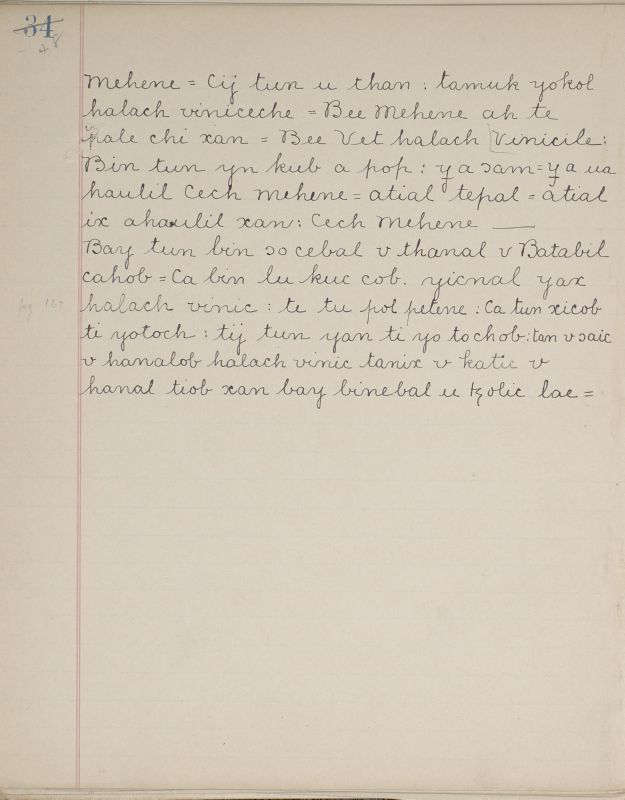 34
48
Mehene = Cij tun u than : tamuk yokol
halach viniceche = Bee Mehene ah te
pale chi xan = Bee Vet halach Vinicile :
Bin tun yn kub a pop : y a ɔam = y a ua
haulil Cech Mehene = atial tepal = atial
ix ahaulil xan : Cech Mehene —
Bay tun bin ɔocebal v thanal v Batabil
cahob = Ca bin lu kuc cob. yicnal yax
pg. 163
halach vinic : te tu pol petene : Ca tun xicob
ti yotoch : tij tun yan ti yo tochob : tan v ɔaic
v hanalob halach vinic tanix v katic v
hanal tiob xan bay binebal u tzolic lae =